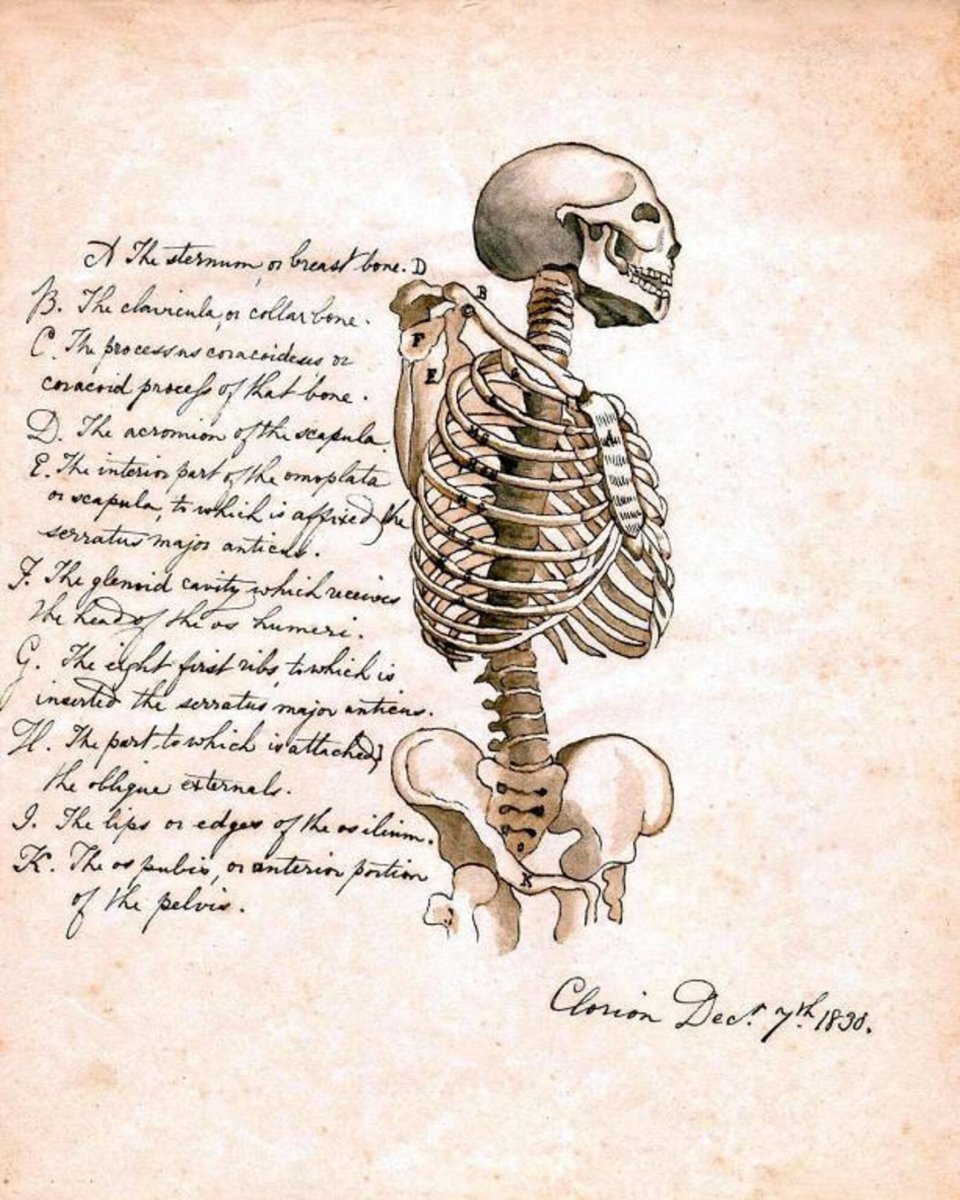 A The sternum, or breast bone. D
B. The clavicula, or collar bone.
C. The processus coracoideus or
coracoid process of that bone.
D. The acromion of the scapula
E. The interior part of the omoplata
or scapula, to which is affixed the
serratus major anticus.
F. The glenoid cavity which receives
the head of the os humeri.
G. The eight first ribs, to which is
inserted the serratus major anticus.
H. The part to which is attached
the oblique externals.
I. The lips or edges of the os ilium.
K. The os pubis, or anterior portion
of the pelvis.
B
F
E
G
A
K
Dec.r 7th. 1830.